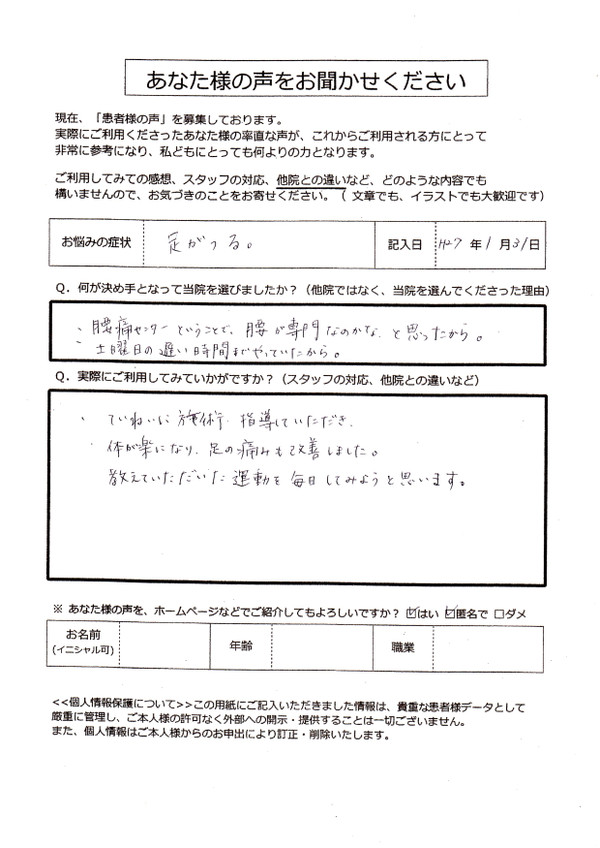 あなた様の声をお聞かせください
現在、「患者様の声」を募集しております。
実際にご利用くださったあなた様の率直な声が、これからご利用される方にとって
非常に参考になり、私どもにとっても何よりの力となります。
ご利用してみての感想、スタッフの対応、他院との違いなど、どのような内容でも
構いませんので、お気づきのことをお寄せください。（ 文章でも、イラストでも大歓迎です）
お悩みの症状 足がつる。 記入日 H27 年 1 月 31 日
Q．何が決め手となって当院を選びましたか？（他院ではなく、当院を選んでくださった理由）
、腰痛センターということで、腰が専門なのかな、と思ったから。
、土曜日の遅い時間までやっていたから。
Q．実際にご利用してみていかがですか？（スタッフの対応、他院との違いなど）
、ていねいに施術、指導していただき、
体が楽になり、足の痛みも改善しました。
教えていただいた運動を毎日してみようと思います。
※ あなた様の声を、ホームページなどでご紹介してもよろしいですか？ ☑はい ☑匿名で □ダメ
お名前
(イニシャル可)
年齢
職業
<<個人情報保護について>>この用紙にご記入いただきました情報は、貴重な患者様データとして
厳重に管理し、ご本人様の許可なく外部への開示・提供することは一切ございません。
また、個人情報はご本人様からのお申出により訂正・削除いたします。